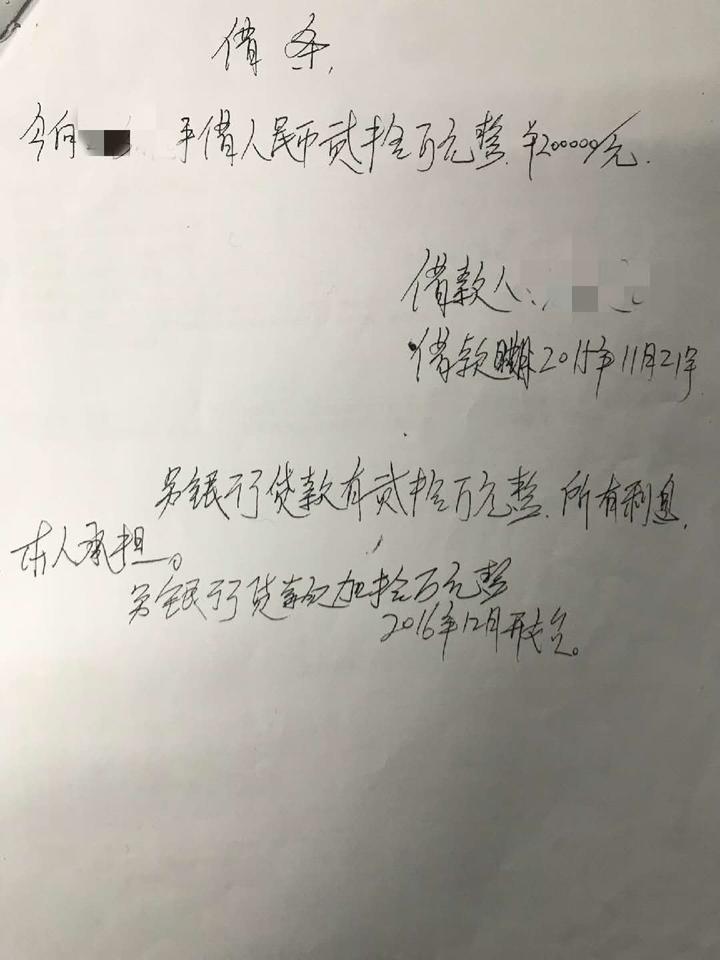 借条
今向手借人民币贰拾万元整.¥200000元.
借款人:
借款日期2015年11月21号
另银行贷款有贰拾万元整.所有利息,
本人承担。
另银行贷款加拾万元整
2016年12月开始。